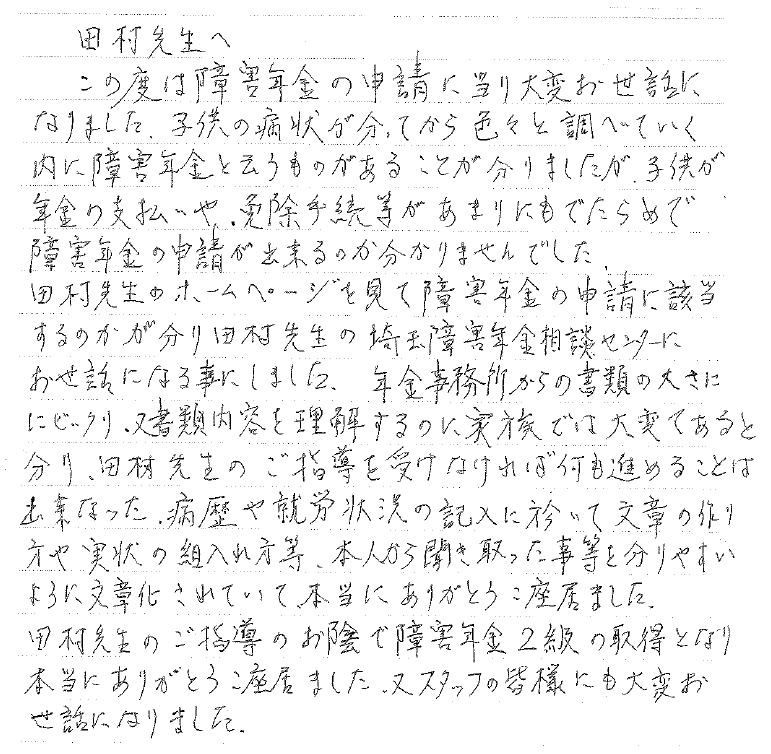 田村先生へ
この度は障害年金の申請に当り大変お世話に
なりました、子供の病状が分ってから色々と調べていく
内に障害年金と云うものがあることが分りましたが、子供が
年金の支払いや、免除手続等があまりにもでたらめで
障害年金の申請が出来るのか分かりませんでした、
田村先生のホームページを見て障害年金の申請に該当
するのかが分り田村先生の埼玉障害年金相談センターに
お世話になる事にしました、年金事務所からの書類の大さに
にビックリ、又書類内容を理解するのに家族では大変であると
分り、田村先生のご指導を受けなければ何も進めることは
出来なった、病歴や就労状況の記入に於いて文章の作り
方や実状の組入れ方等、本人から聞き取った事等を分りやすい
ように文章化されていて、本当にありがとうご座居ました、
田村先生のご指導のお陰で障害年金2級の取得となり
本当にありがとうご座居ました、又スタッフの皆様にも大変お
せ話になりました、